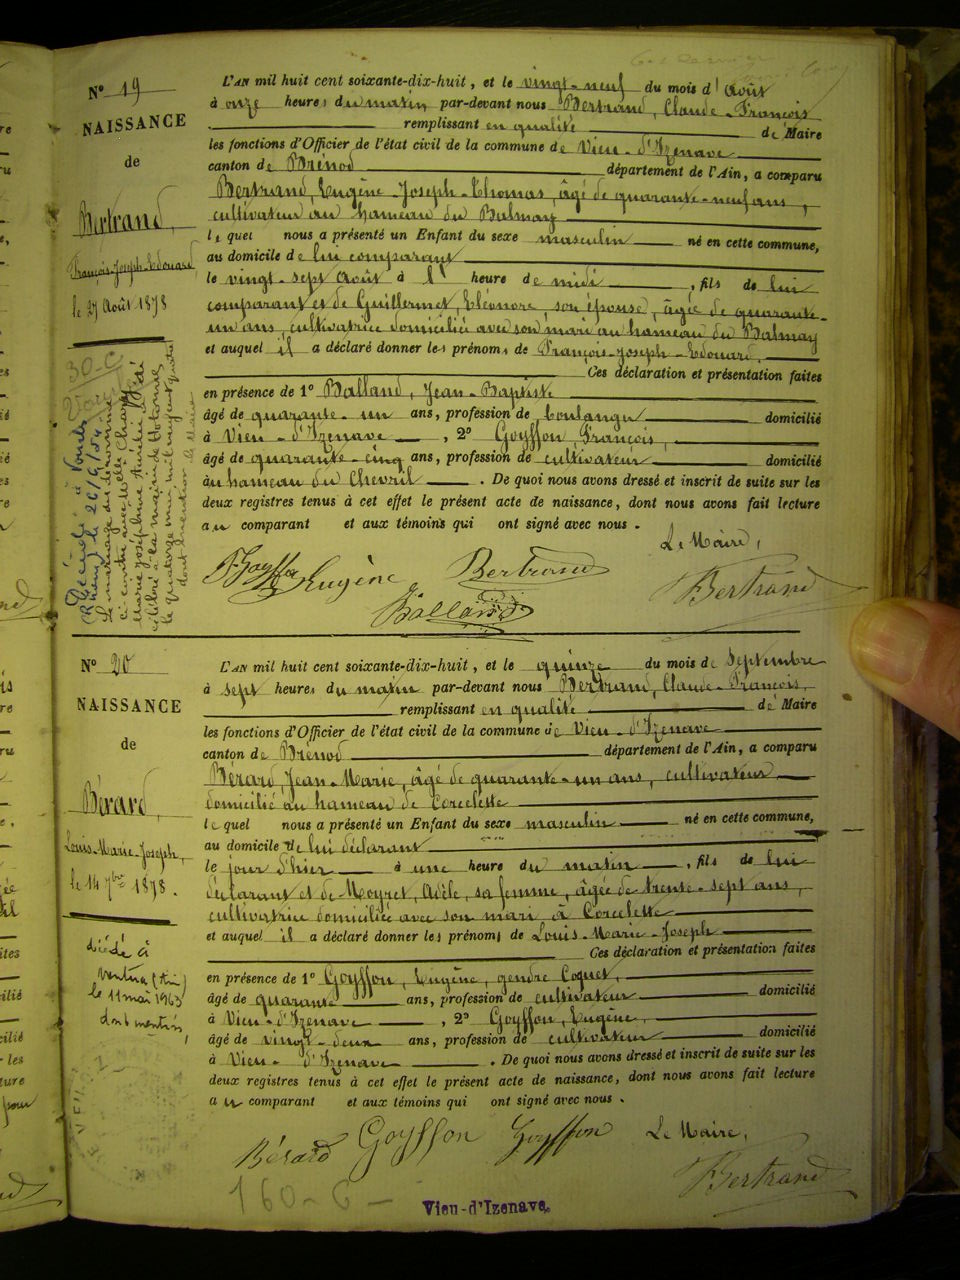 N° 19
NAISSANCE
de
Bertrand,
François-Joseph-Edouard,
le 27 Août 1878
L'AN mil huit cent soixante-dix-huit, et le vingt-neuf du mois d'Août
à onze heures du matin par-devant nous Bertrand, Claude-François
remplissant en qualité de Maire
les fonctions d'Officier de l'état civil de la commune de Vieu-d'Izenave
canton de Brénod département de l'Ain, a comparu
Bertrand, Eugène-Joseph-Thomas, âgé de quarante-neuf ans,
cultivateur au hameau du Balmay
lequel nous a présenté un Enfant du sexe masculin né en cette commune,
au domicile de lui comparant
le vingt-sept Août à l' heure de midi, fils de lui
comparant et de Guillermet, Eléonore, son épouse, âgée de quarante-
un ans, cultivatrice domiciliée avec son mari au hameau du Balmay
et auquel il a déclaré donner les prénoms de François-Joseph-Edouard,
Ces déclaration et présentation faites
en présence de 1° Balland, Jean-Baptiste
âgé de quarante-un ans, profession de boulanger domicilié
à Vieu-d'Izenave, 2° Goyffon, François,
âgé de quarante-cinq ans, profession de cultivateur domicilié
au hameau du Chevril. De quoi nous avons dressé et inscrit de suite sur les
deux registres tenus à cet effet le présent acte de naissance, dont nous avons fait lecture
au comparant et aux témoins qui ont signé avec nous.
Le Maire,
Goyffon Eugène Bertrand
Balland
Bertrand
N° 20
NAISSANCE
de
Bérard,
Louis-Marie-Joseph,
le 14 7bre 1878.
décédé à
(Ain)
le 11 mai 1963
dont mention
L'AN mil huit cent soixante-dix-huit, et le quinze du mois de Septembre
à sept heures du matin par-devant nous Bertrand, Claude-François,
remplissant en qualité de Maire
les fonctions d'Officier de l'état civil de la commune de Vieu-d'Izenave
canton de Brénod département de l'Ain, a comparu
Bérard, Jean-Marie, âgé de quarante-un ans, cultivateur
domicilié au hameau de Corcelette
lequel nous a présenté un Enfant du sexe masculin né en cette commune,
au domicile de lui déclarant
le jour d'hier à une heure du matin, fils de lui
déclarant et de Moyret, Adèle, sa femme, âgée de trente-sept ans,
cultivatrice domiciliée avec son mari, à Corcelette
et auquel il a déclaré donner les prénoms de Louis-Marie-Joseph
Ces déclaration et présentation faites
en présence de 1° Goyffon, Eugène, gendre Coquet,
âgé de quarante ans, profession de cultivateur domicilié
à Vieu-d'Izenave, 2° Goyffon, Eugène,
âgé de vingt-deux ans, profession de cultivateur domicilié
à Vieu-d'Izenave. De quoi nous avons dressé et inscrit de suite sur les
deux registres tenus à cet effet le présent acte de naissance, dont nous avons fait lecture
au comparant et aux témoins qui ont signé avec nous.
Bérard Goyffon Goyffon Le Maire,
Bertrand
160-6-
Vieu-d'Izenave